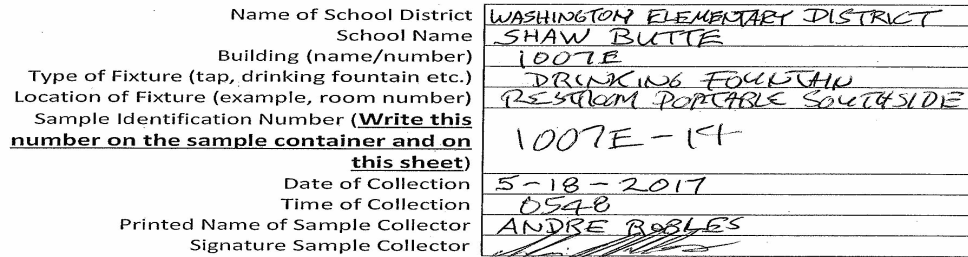 Name of School District WASHINGTON ELEMENTARY DISTRICT
School Name SHAW BUTTE
Building (name/number) 1007E
Type of Fixture (tap, drinking fountain etc.) DRINKING FOUNTAIN
Location of Fixture (example, room number) RESTROOM PORTABLE SOUTHSIDE
Sample Identification Number (Write this
number on the sample container and on 1007E-14
this sheet)
Date of Collection 5-18-2017
Time of Collection 0548
Printed Name of Sample Collector ANDRE ROBLES
Signature Sample Collector